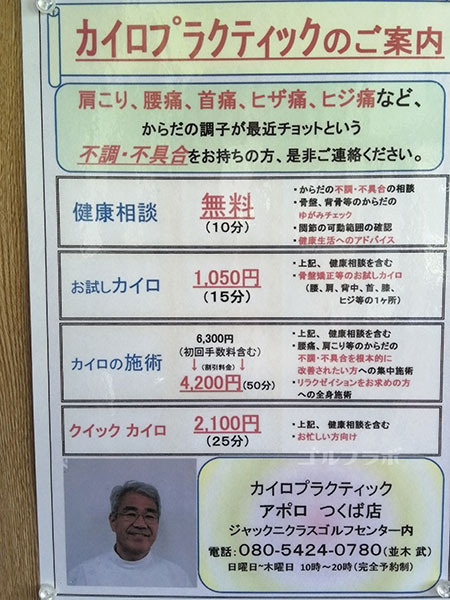 カイロプラクティックのご案内
肩こり、腰痛、首痛、ヒザ痛、ヒジ痛など、
からだの調子が最近チョットという
不調・不具合をお持ちの方、是非ご連絡ください。
健康相談
無料
(10分)
・からだの不調・不具合の相談
・骨盤、背骨等のからだの
ゆがみチェック
・関節の可動範囲の確認
・健康生活へのアドバイス
お試しカイロ
1,050円
(15分)
・上記、健康相談を含む
・骨盤矯正等のお試しカイロ
(腰、肩、背中、首、膝、
ヒジ等の1ヶ所)
カイロの施術
6,300円
(初回手数料含む)
↓(割引料金)↓
4,200円(50分)
・上記、健康相談を含む
・腰痛、肩こり等のからだの
不調・不具合を根本的に
改善されたい方への集中施術
・リラクゼイションをお求めの方
への全身施術
クイック カイロ
2,100円
(25分)
・上記、健康相談を含む
・お忙しい方向け
ゴルフラボ
カイロプラクティック
アポロ つくば店
ジャックニクラスゴルフセンター内
電話:080-5424-0780(並木 武)
日曜日~木曜日 10時~20時(完全予約制)